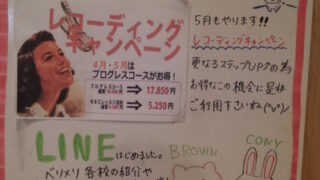 レコーディング
キャンペーン
4月・5月は
プログレスコースがお得！
プログレスコース
17,850円
5,250円
5月もやります!!
レコーディングキャンペーン
更なるステップUPの為
お得なこの機会に是非
ご利用下さいね(^o^)
LINEはじめました。
ベリメリ各校の紹介や
BROWN
CONY